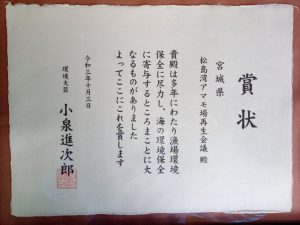 賞状
宮城県
松島湾アマモ場再生会議 殿
貴殿は多年にわたり漁場環境
保全に尽力し、海の環境保全
に寄与するところまことに大
なるものがありました
よってここにこれを賞します
令和三年十月三日
環境大臣 小泉進次郎